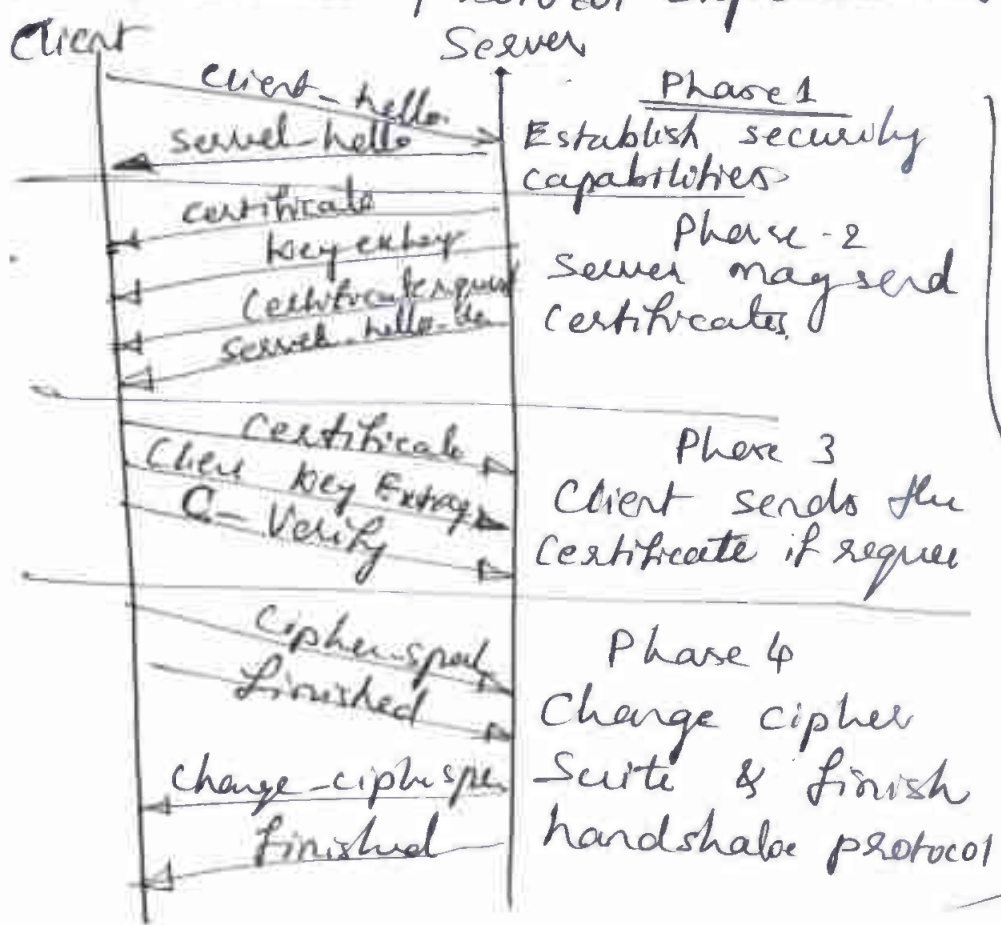 protocol
Client
Server
client-hello.
server-hello
Phase 1
Establish security
capabilities
certificate
key exhag
Certificate request
server-hello-
Phase-2
Server may send
certificates.
Certificate
Client key Exchag
C-Verify
Phase 3
Client sends the
certificate if reque
Cipher-spec
finished
change-cipherspec
finished
Phase 4
Change cipher
Suite & finish
handshake protocol